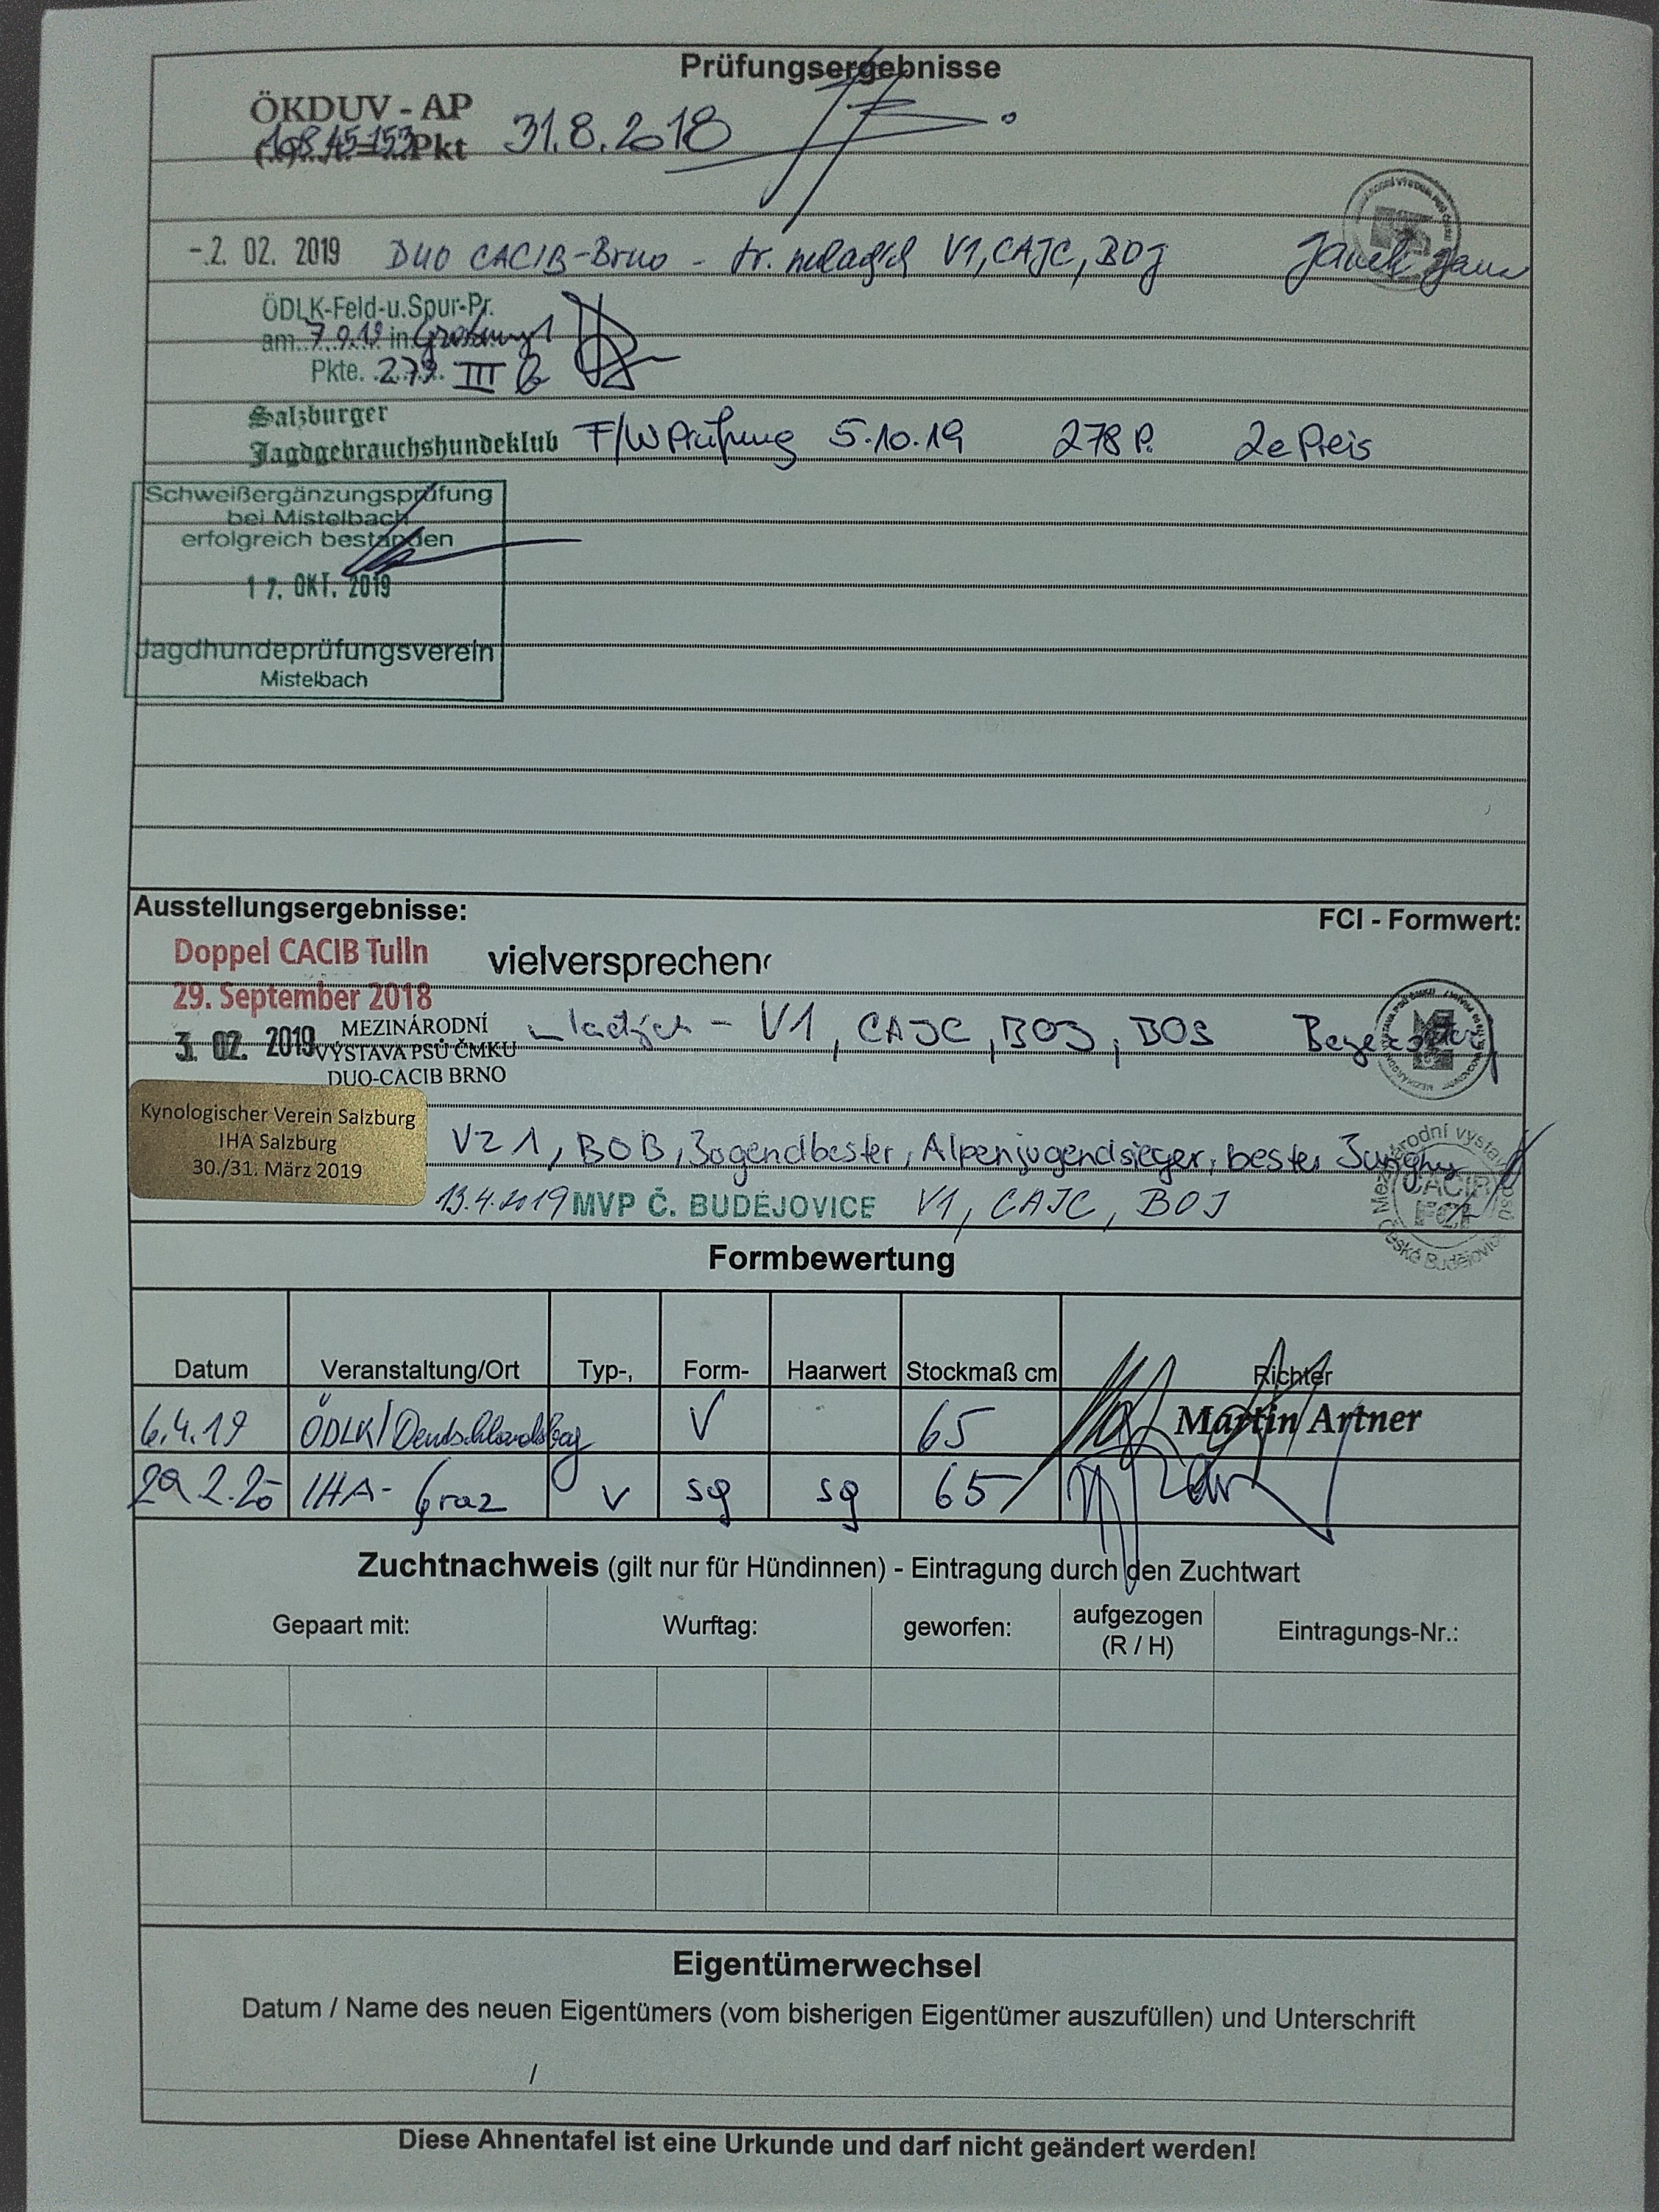 Prüfungsergebnisse
ÖKDUV - AP
Pkt 31.8.2018
-2. 02. 2019 DUO CACIB-Brno - tr. V1, CAJC, BOJ
ÖDLK-Feld-u.Spur-Pr.
am 7.9.19 in
Pkte. 279 III
Salzburger
Jagdgebrauchshundeklub F/W Prüfung 5.10.19 278 P. 2e Preis
Schweißergänzungsprüfung
bei Mistelbach
erfolgreich bestanden
17. OKT. 2019
Jagdhundeprüfungsverein
Mistelbach
Ausstellungsergebnisse: FCI - Formwert:
Doppel CACIB Tulln vielversprechen
29. September 2018
3. 02. 2019 MEZINÁRODNÍ - V1, CAJC, BOJ, BOS
VÝSTAVA PSŮ ČMKU
DUO-CACIB BRNO
Kynologischer Verein Salzburg
IHA Salzburg
30./31. März 2019
VZ 1, BOB, Jugendbester, Alpenjugendsieger, bester
13.4.2019 MVP Č. BUDĚJOVICE V1, CAJC, BOJ
CACIB
FCI
České Budějovice
Formbewertung
Datum Veranstaltung/Ort Typ-, Form- Haarwert Stockmaß cm Richter
6.4.19 ÖDLK/Deutschlandsberg V 65 Martin Artner
29.2.20 IHA- Graz v sg sg 65
Zuchtnachweis (gilt nur für Hündinnen) - Eintragung durch den Zuchtwart
Gepaart mit: Wurftag: geworfen: aufgezogen (R / H) Eintragungs-Nr.:
Eigentümerwechsel
Datum / Name des neuen Eigentümers (vom bisherigen Eigentümer auszufüllen) und Unterschrift
/
Diese Ahnentafel ist eine Urkunde und darf nicht geändert werden!